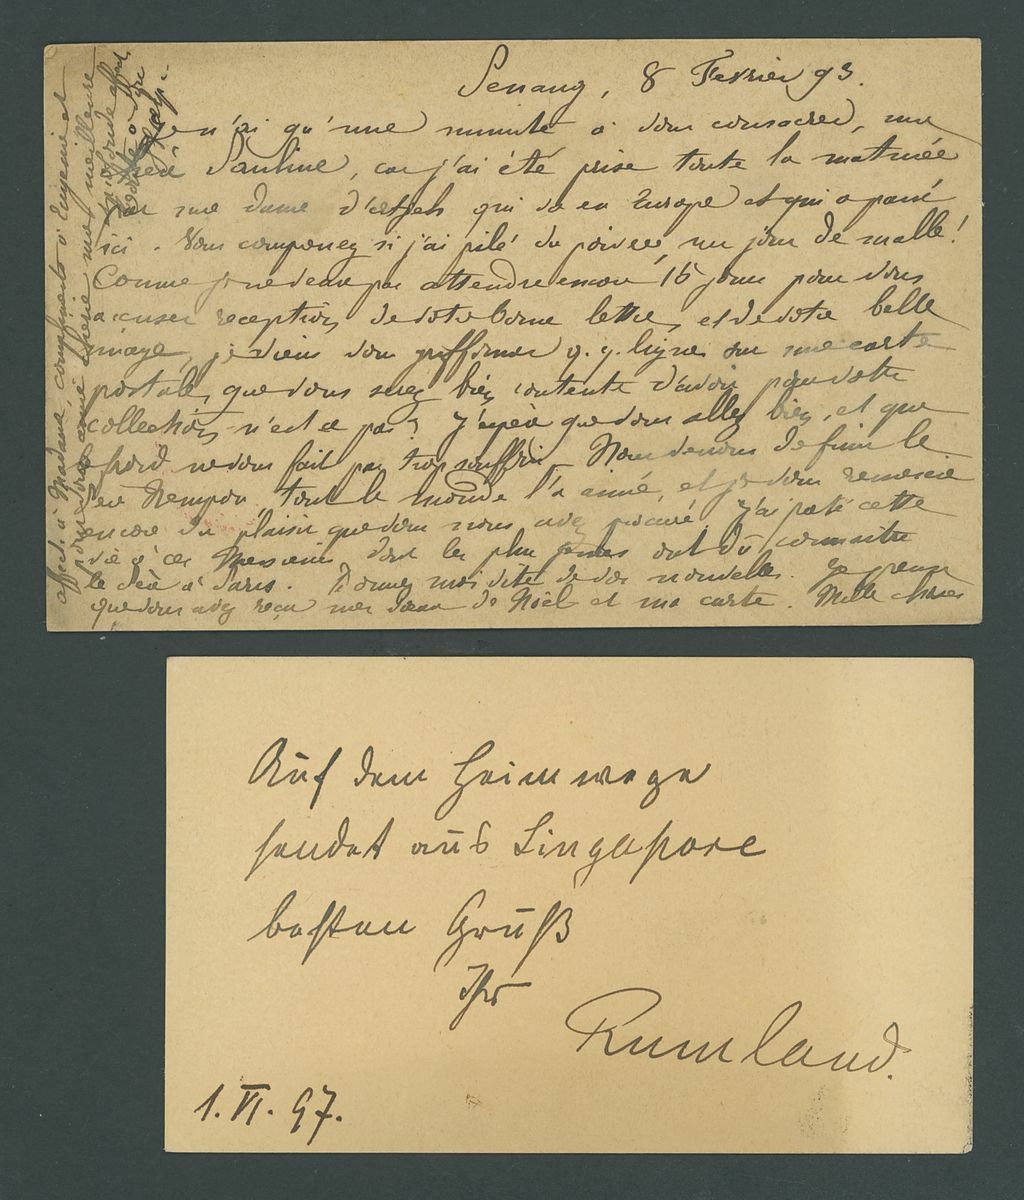 Penang, 8 Fevrier 93.
Je n'ai qu'une minute à vous consacrer, ma
chère Pauline, car j'ai été prise toute la matinée
par une dame d' qui va en Europe et qui a passé
ici. Vous comprenez si j'ai pilé du poivre, un jour de malle!
Comme je ne veux pas attendre encore 15 jours pour vous
accuser reception de votre bonne lettre, et de votre belle
image, je viens vous griffonner q.q. lignes sur une carte
postale, que vous serez bien contente d'avoir pour votre
collection, n'est ce pas? J'espère que vous allez bien, et que
froid ne vous fait pas trop souffrir. Nous venons de finir le
Père Nempon, tout le monde l'a aimé, et je vous remercie
encore du plaisir que vous nous avez procuré. J'ai prêté cette
vie à ces Messieurs dont les plus jeunes ont dû connaître
le Père à Paris. Donnez moi vite de vos nouvelles. Je pense
que vous avez reçu mes vœux de Noël et ma carte. Mille choses
affect. à Madame, compliments à Eugénie et
pour vous ma chérie mes meilleures
Auf dem Heimwege
sendet aus Singapore
besten Gruß
Ihr
Rumland.
1.VI.97.